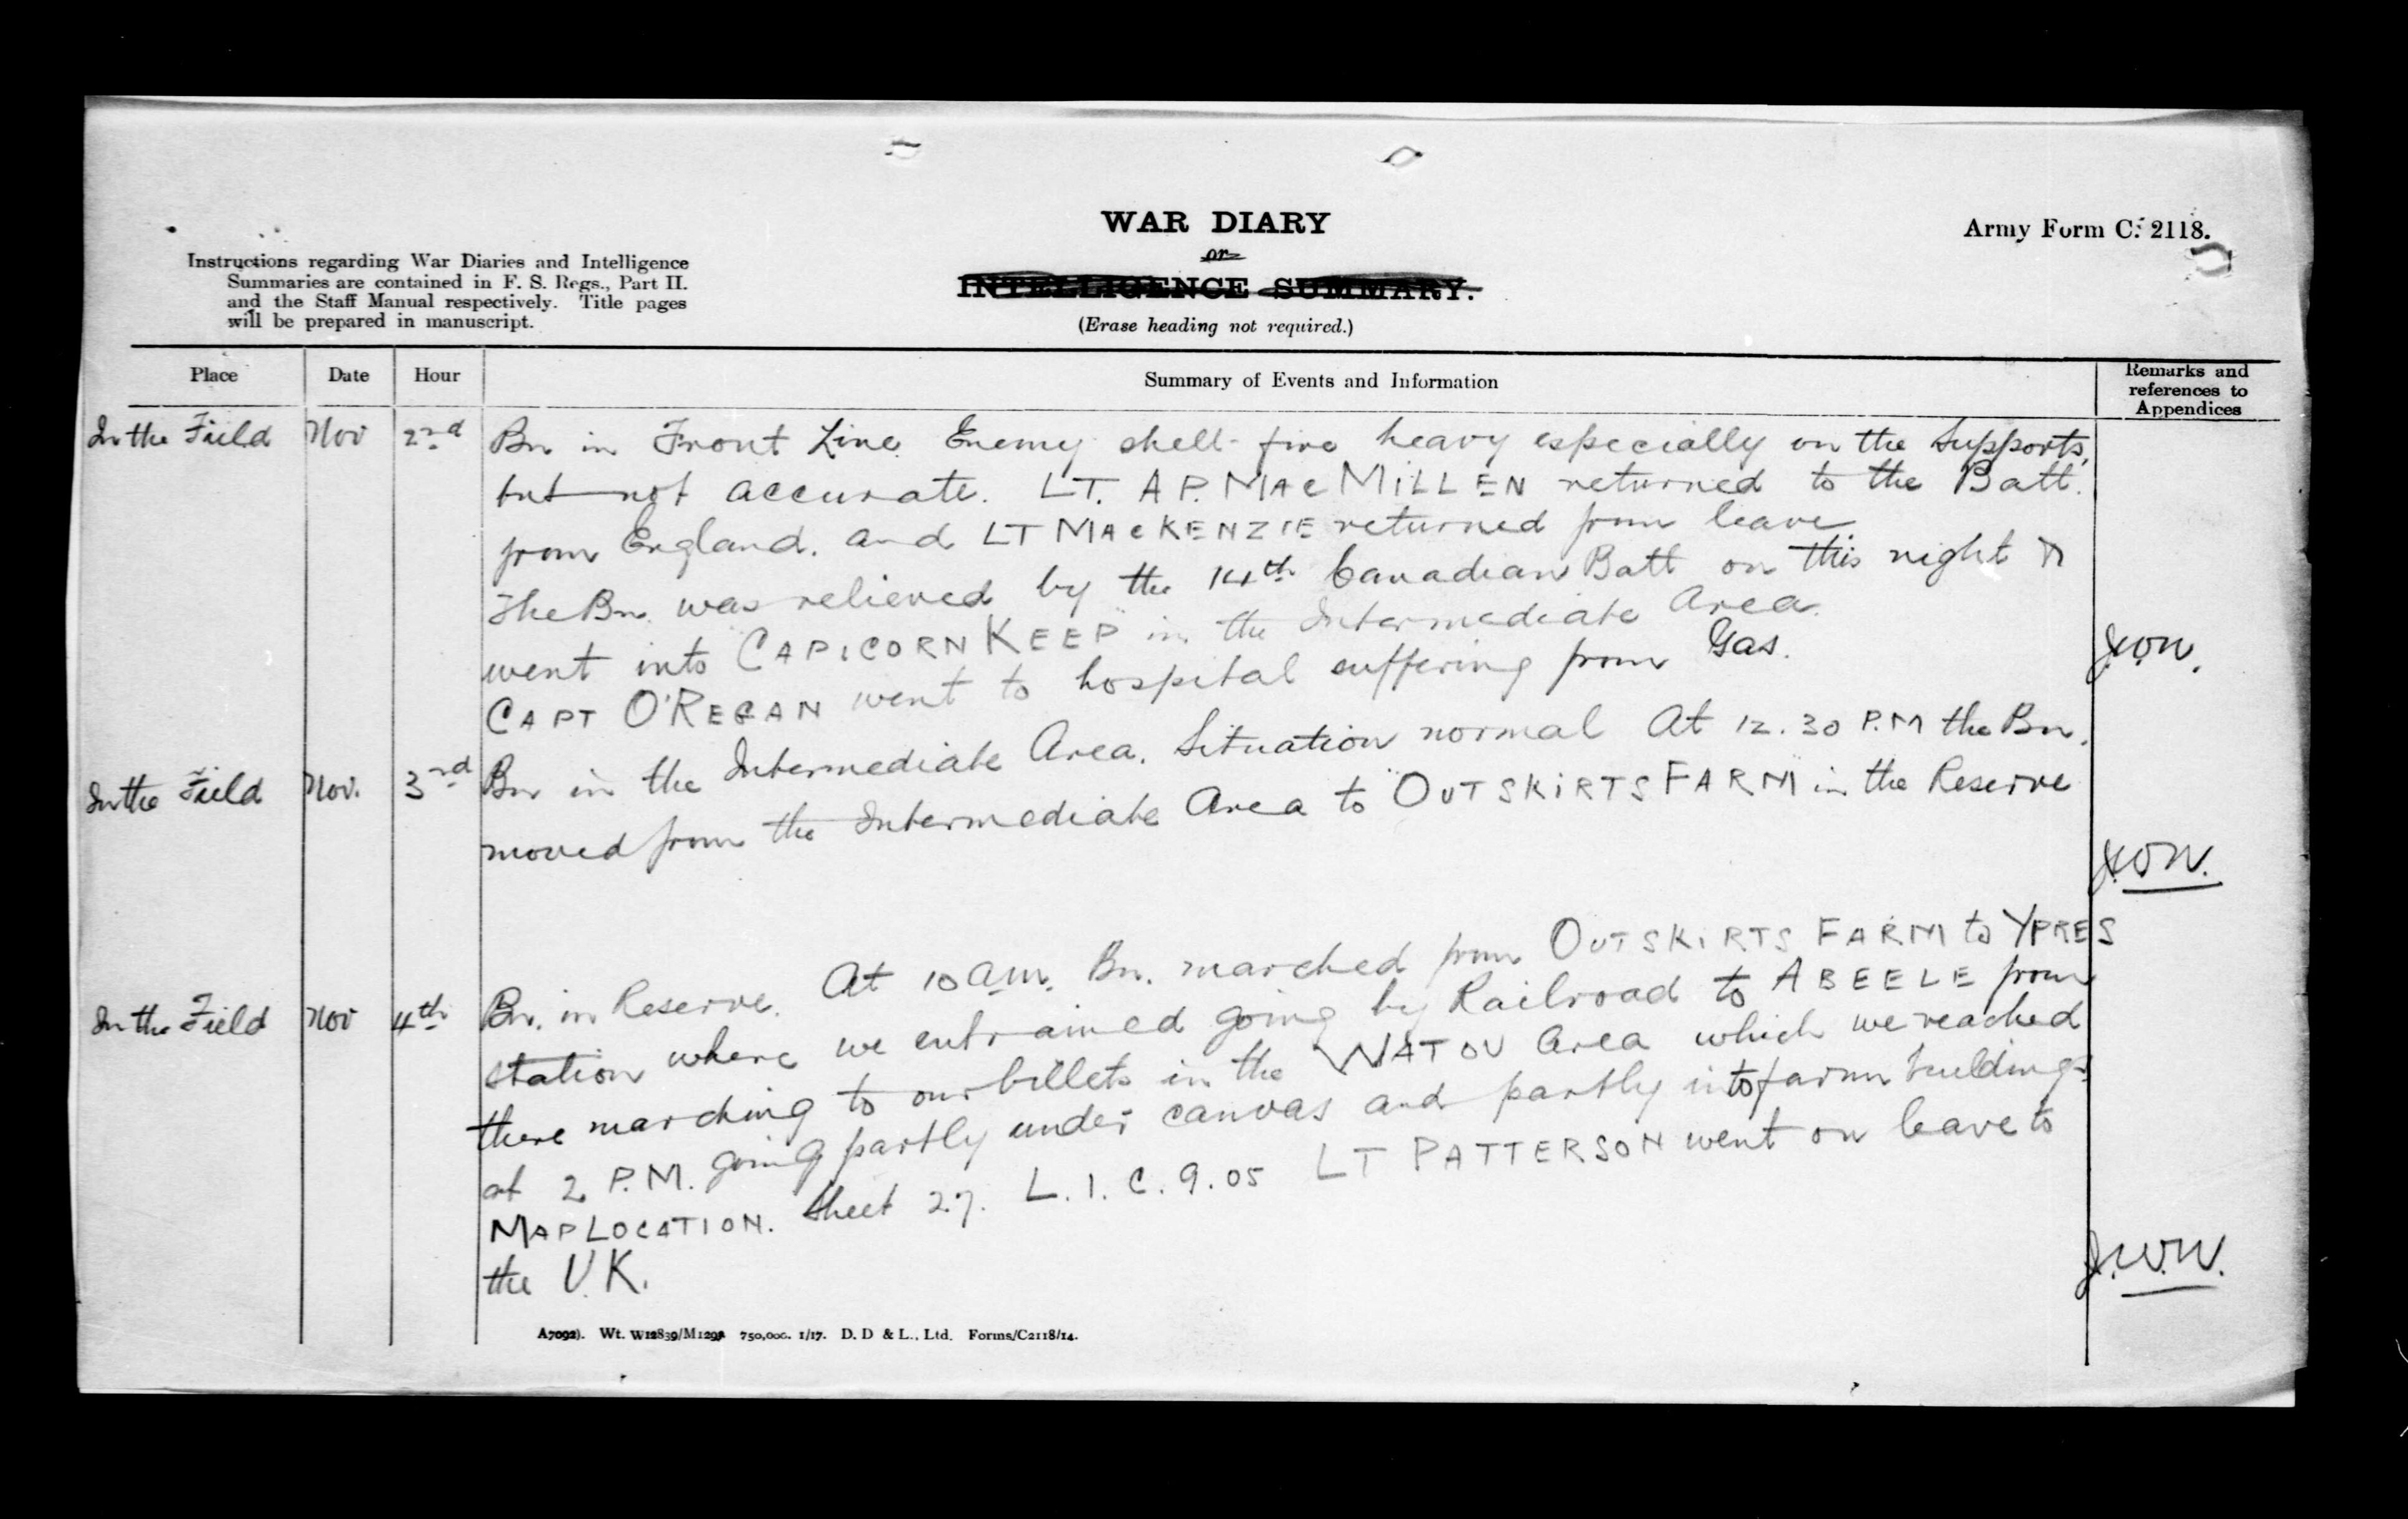 WAR DIARY
or
INTELLIGENCE SUMMARY.
(Erase heading not required.)
Army Form C. 2118.
Instructions regarding War Diaries and Intelligence
Summaries are contained in F. S. Regs., Part II.
and the Staff Manual respectively. Title pages
will be prepared in manuscript.
Place Date Hour Summary of Events and Information Remarks and references to Appendices
In the Field Nov 2nd Bn in Front Line Enemy shell fire heavy especially on the Supports,
but not accurate. LT. A P. MACMILLEN returned to the Batt.
from England. and LT MACKENZIE returned from leave.
The Bn. was relieved by the 14th Canadian Batt on this night &
went into "CAPICORN KEEP" in the Intermediate Area.
CAPT O'REGAN went to hospital suffering from Gas.
In the Field Nov. 3rd Bn in the Intermediate Area. Situation normal At 12.30 P.M the Bn.
moved from the Intermediate Area to "OUTSKIRTS FARM in the Reserve
In the Field Nov 4th Bn. in Reserve. At 10 am. Bn. marched from OUTSKIRTS FARM to YPRES
station where we entrained going by Railroad to ABEELE from
there marching to our billets in the WATOU Area which we reached
at 2 P.M. going partly under canvas and partly into farm buildings
MAP LOCATION. Sheet 27. L.1.C.9.05 LT PATTERSON went on leave to
the U.K.
J.W.W.
A7092). Wt. W12839/M1293 750,000. 1/17. D. D & L., Ltd. Forms/C2118/14.